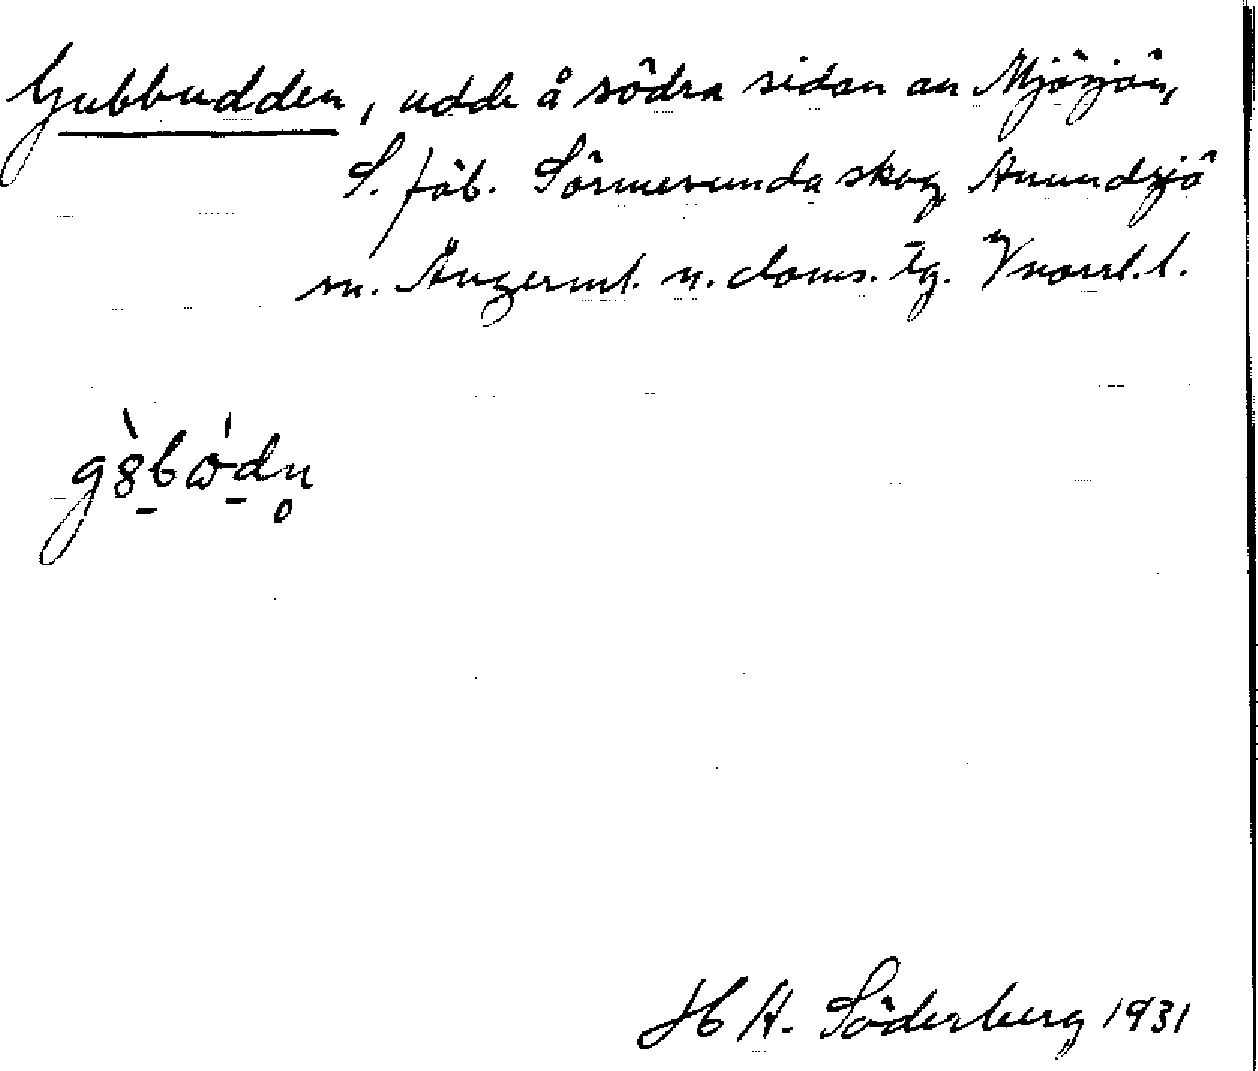 Gubbudden, udde å södra sidan av Mjösjön,
S. fäb. Sörmerunda skog, Anundsjö
sn. Ångerml. n. doms. tg. Vnorrl. l.
H A. Söderberg 1931